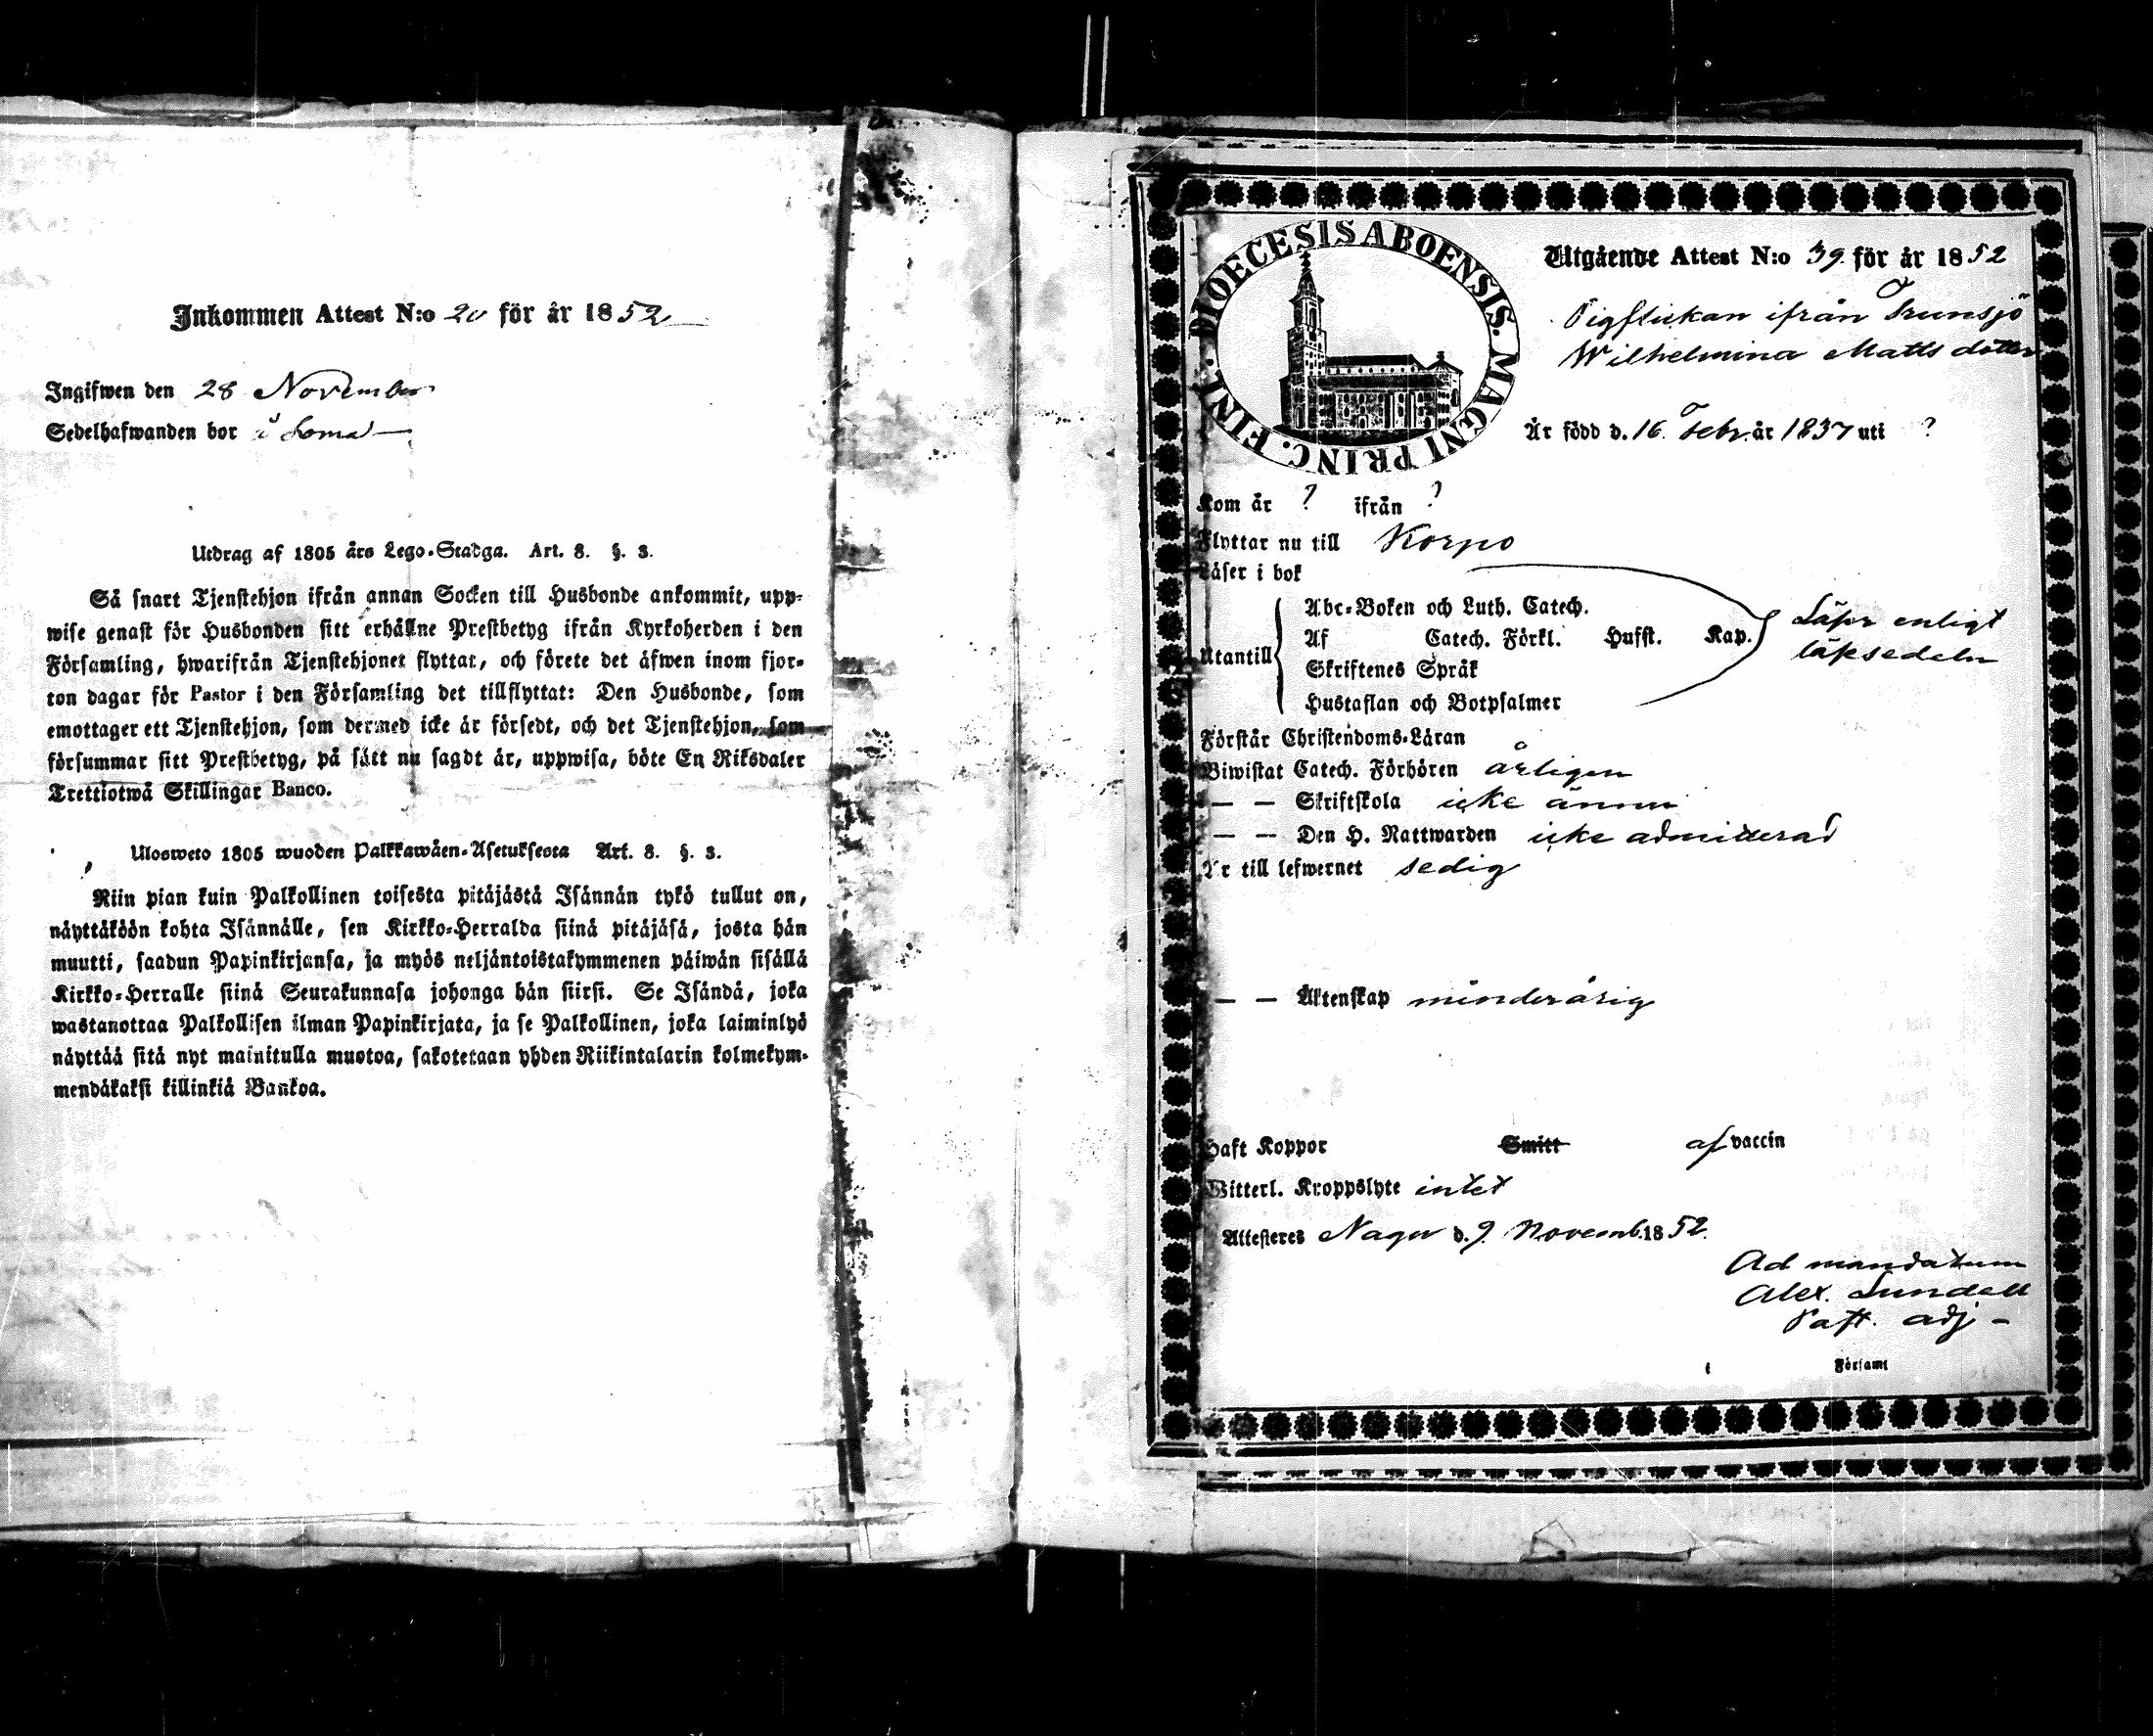 Inkommen Attest N:o 20 för år 1852
Ingifwen den 28 November
Sedelhafwanden bor å Soma
Utdrag af 1805 års Lego-Stadga. Art. 8. §. 3.
Så snart Tjenstehjon ifrån annan Socken till Husbonde ankommit, upp-
wise genast för Husbonden sitt erhållne Prestbetyg ifrån Kyrkoherden i den
Församling, hwarifrån Tjenstehjonet flyttat, och förete det äfwen inom fjor-
ton dagar för Pastor i den Församling det tillflyttat: Den Husbonde, som
emottager ett Tjenstehjon, som dermed icke är försedt, och det Tjenstehjon, som
försummar sitt Prestbetyg, på sätt nu sagdt är, uppwisa, böte En Riksdaler
Trettiotwå Skillingar Banco.
Ulosweto 1805 wuoden Palkkawäen-Asetuksesta Art. 8. §. 3.
Niin pian kuin Palkollinen toisesta pitäjästä Isännän tykö tullut on,
näyttäköön kohta Isännälle, sen Kirkko-Herralda siinä pitäjäsä, josta hän
muutti, saadun Papinkirjansa, ja myös neljäntoistakymmenen päiwän sisällä
Kirkko-Herralle siinä Seurakunnasa johonga hän siirsi. Se Isändä, joka
wastanottaa Palkollisen ilman Papinkirjata, ja se Palkollinen, joka laiminlyö
näyttää sitä nyt mainitulla muotoa, sakotetaan yhden Riikintalarin kolmekym-
mendäkaksi killinkiä Bankoa.
DIOECESIS ABOENSIS. MAGNI PRINC. FINL.
Utgående Attest N:o 39 för år 1852
Pigflickan ifrån Trunsjö
Wilhelmina Matts dotter
Är född d. 16 Febr. år 1837 uti ?
Kom år ? ifrån ?
Flyttar nu till Korpo
Läser i bok
Utantill
Abc-Boken och Luth. Catech.
Af Catech. Förkl. Husst. Kap.
Skriftenes Språk
Hustaflan och Botpsalmer
Läser enligt
läxsedeln
Förstår Christendoms-Läran
Biwistat Catech. Förhören årligen
— — Skriftskola icke ännu
— — Den H. Nattwarden icke admitterad
Är till lefwernet sedig
— — Äktenskap minderårig
Haft Koppor Smitt af vaccin
Witterl. Kroppslyte intet
Attesteres Nagu d. 9 Novemb. 1852.
Ad mandatum
Alex. Lundell
Past. adj –
i Församl